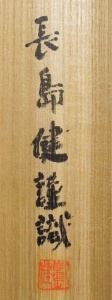 長島健謹識